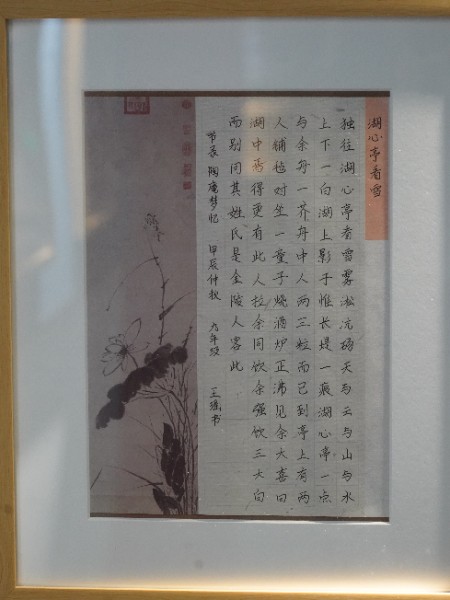 湖心亭看雪
独往湖心亭看雪雾凇沆砀天与云与山与水
上下一白湖上影子惟长堤一痕湖心亭一点
与余舟一芥舟中人两三粒而已到亭上有两
人铺毡对坐一童子烧酒炉正沸见余大喜曰
湖中焉得更有此人拉余同饮余强饮三大白
而别问其姓氏是金陵人客此
节录陶庵梦忆 甲辰仲秋 九年级 王 书